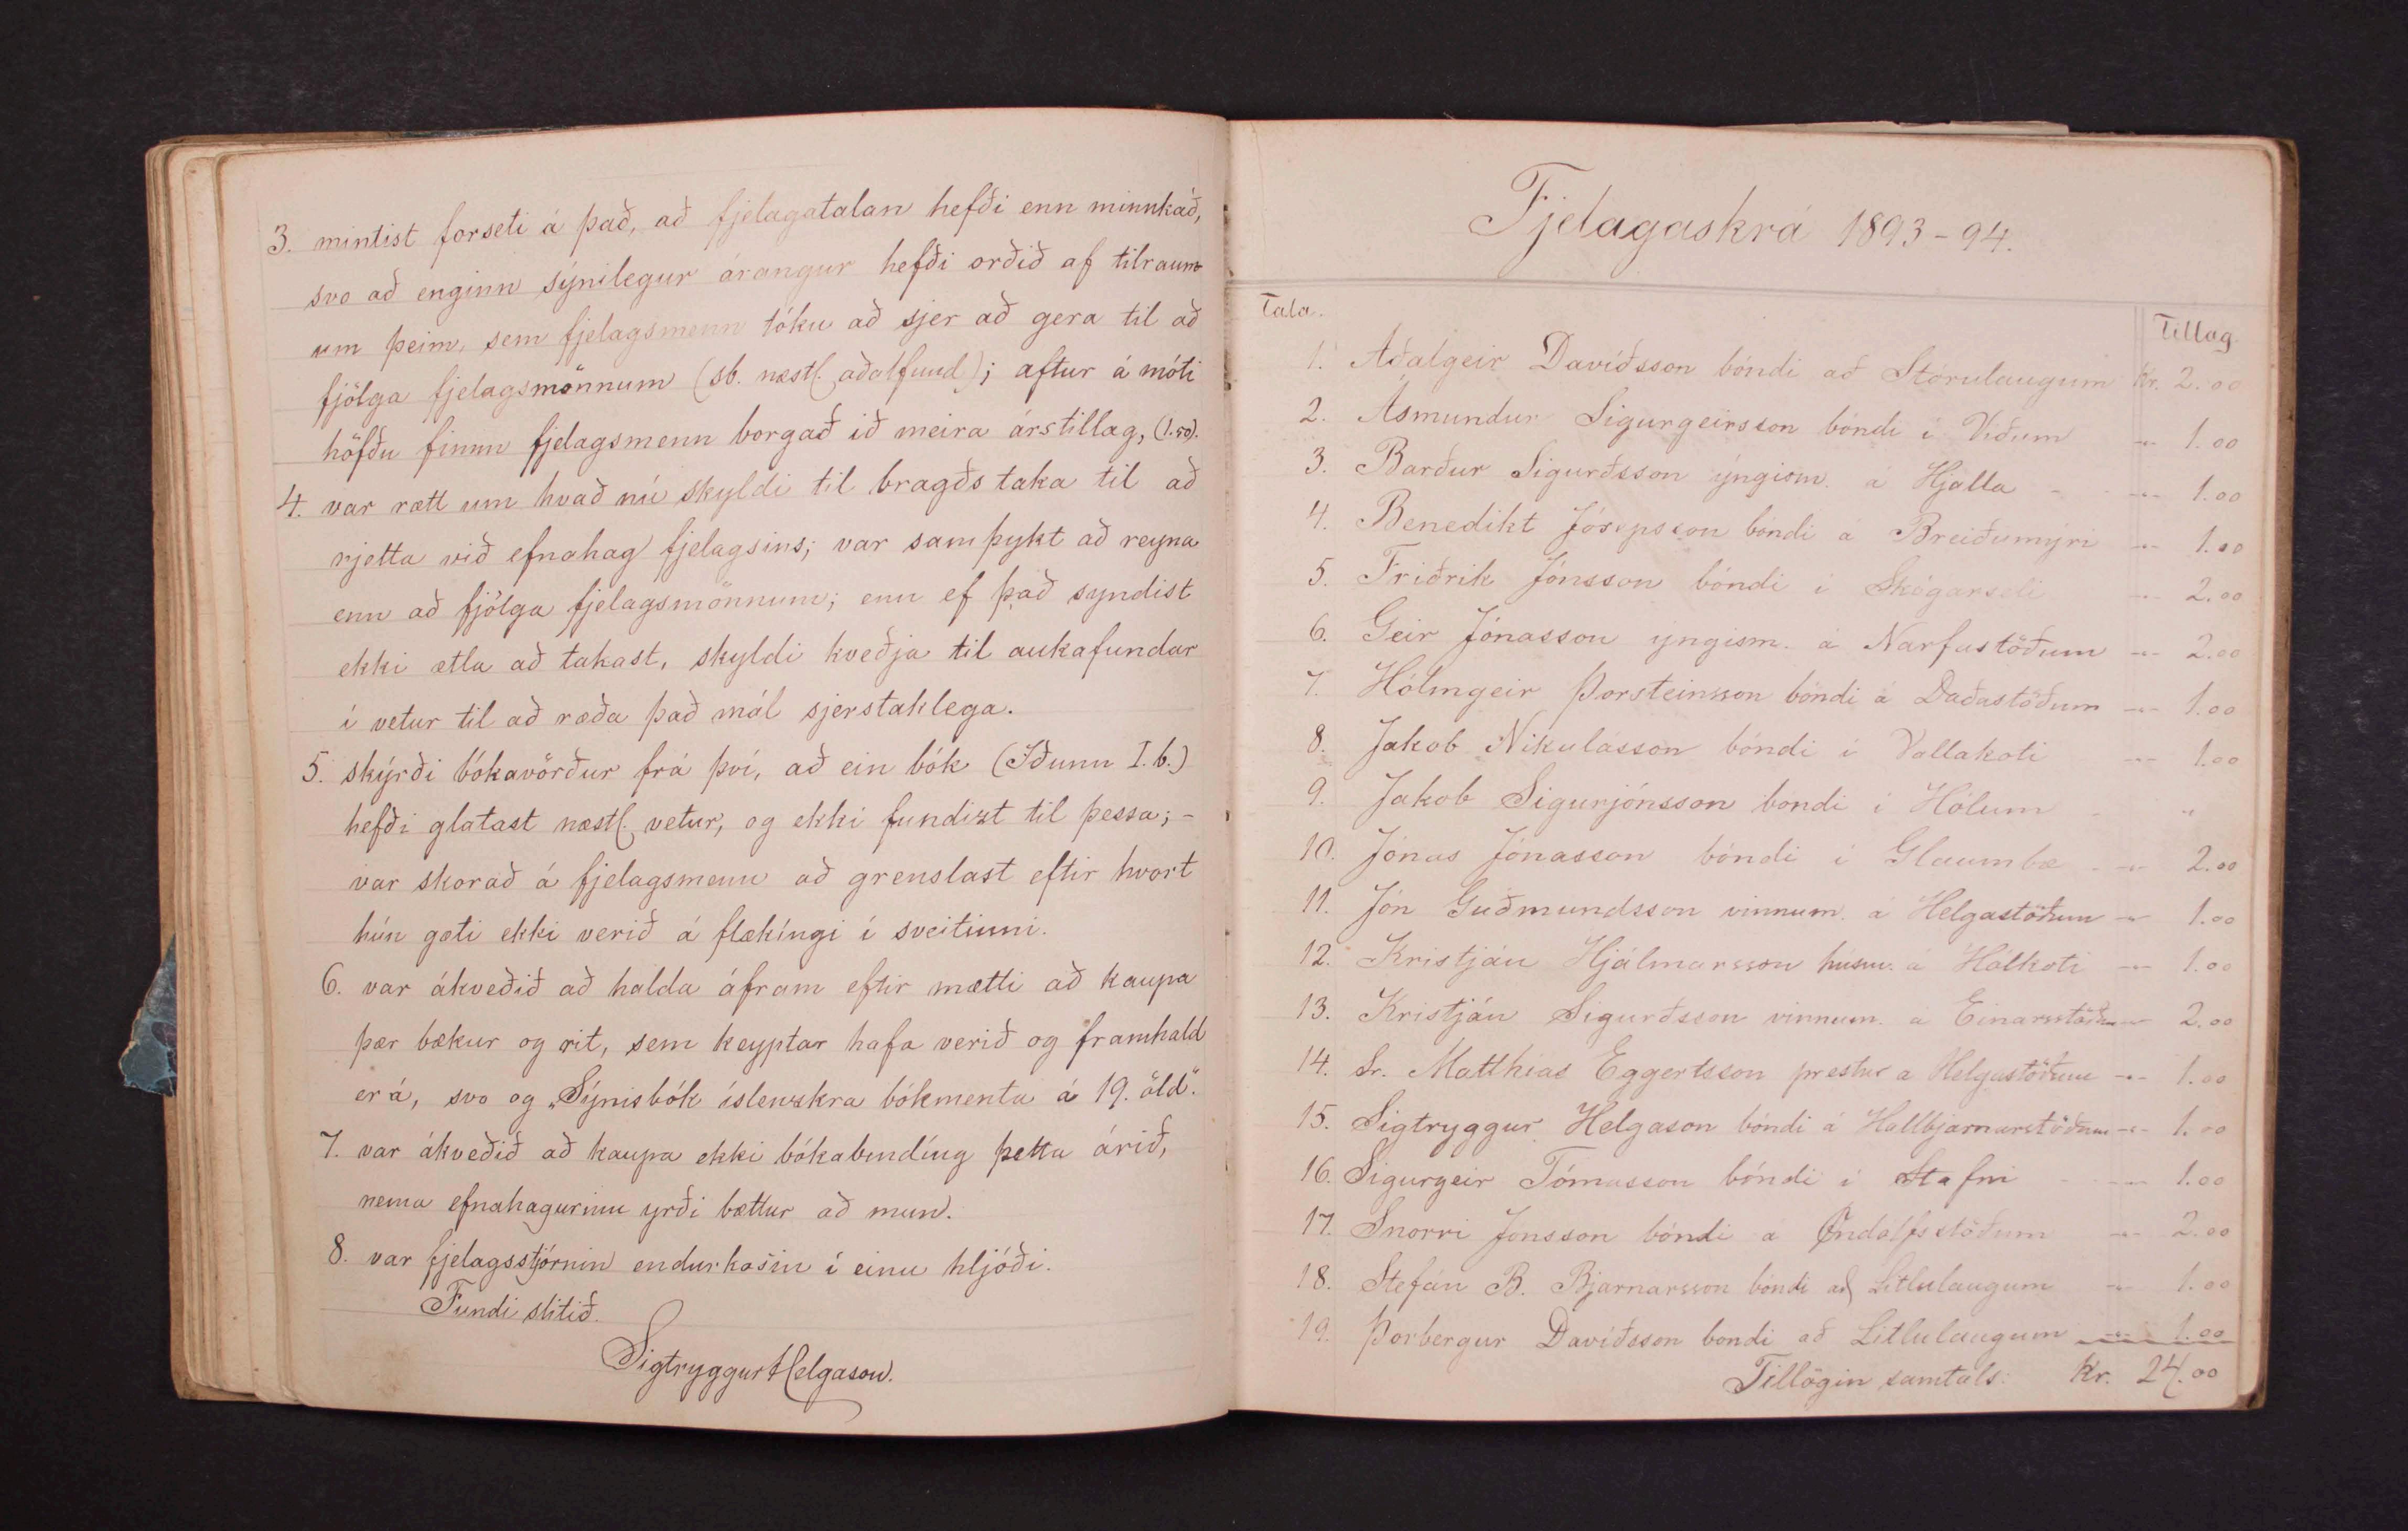 3. mintist forseti á það, að fjelagatalan hefði enn minnkað,
svo að enginn sýnilegur árangur hefði orðið af tilraun-
um þeim, sem fjelagsmenn tóku að sjer að gera til að
fjölga fjelagsmönnum (sb. næstl. aðalfund); aftur á móti
höfðu fimm fjelagsmenn borgað ið meira árstillag, (1.50).
4. var rætt um hvað nú skyldi til bragðs taka til að
rjetta við efnahag fjelagsins; var samþykt að reyna
enn að fjölga fjelagsmönnum; enn ef það syndist
ekki ætla að takast, skyldi kveðja til aukafundar
í vetur til að ræða það mál sjerstaklega.
5. skýrði bókavörður frá því, að ein bók (Iðunn I. b.)
hefði glatast næstl. vetur, og ekki fundizt til þessa; -
var skorað á fjelagsmenn að grenslast eftir hvort
hún gæti ekki verið á flækíngi í sveitinni.
6. var ákveðið að halda áfram eftir mætti að kaupa
þær bækur og rit, sem keyptar hafa verið og framhald
er á, svo og „Sýnisbók íslenzkra bókmenta á 19. öld“.
7. var ákveðið að kaupa ekki bókabindíng þetta árið,
nema efnahagurinn yrði bættur að mun.
8. var fjelagsstjórnin endurkosin í einu hljóði.
Fundi slitið.
Sigtryggur Helgason.
Fjelagaskrá 1893-94.
Tala. Tillag
1. Aðalgeir Davíðsson bóndi að Stórulaugum Kr. 2.00
2. Ásmundur Sigurgeirsson bóndi í Víðum -"- 1.00
3. Barður Sigurðsson ýngism. á Hjalla - -"- 1.00
4. Benedikt Jósepsson bóndi á Breiðumýri -"- 1.00
5. Friðrik Jónsson bóndi í Skógarseli -"- 2.00
6. Geir Jónasson yngism. á Narfastöðum -"- 2.00
7. Hólmgeir Þorsteinsson bóndi á Daðastöðum -"- 1.00
8. Jakob Nikulásson bóndi í Vallakoti -"- 1.00
9. Jakob Sigurjónsson bóndi í Hólum - "
10. Jónas Jónasson bóndi í Glaumbæ - -"- 2.00
11. Jón Guðmundsson vinnum. á Helgastöðum -"- 1.00
12. Kristján Hjálmarsson húsm. á Hólkoti -"- 1.00
13. Kristján Sigurðsson vinnum. á Einarsstöðum -"- 2.00
14. Sr. Matthías Eggertsson prestur á Helgastöðum -"- 1.00
15. Sigtryggur Helgason bóndi á Hallbjarnarstöðum -"- 1.00
16. Sigurgeir Tómasson bóndi í Stafni - -"- 1.00
17. Snorri Jónsson bóndi á Öndólfsstöðum -"- 2.00
18. Stefán B. Bjarnarsson bóndi að Litlulaugum -"- 1.00
19. Þorbergur Davíðsson bondi að Litlulaugum -"- 1.00
Tillögin samtals: Kr. 24.00